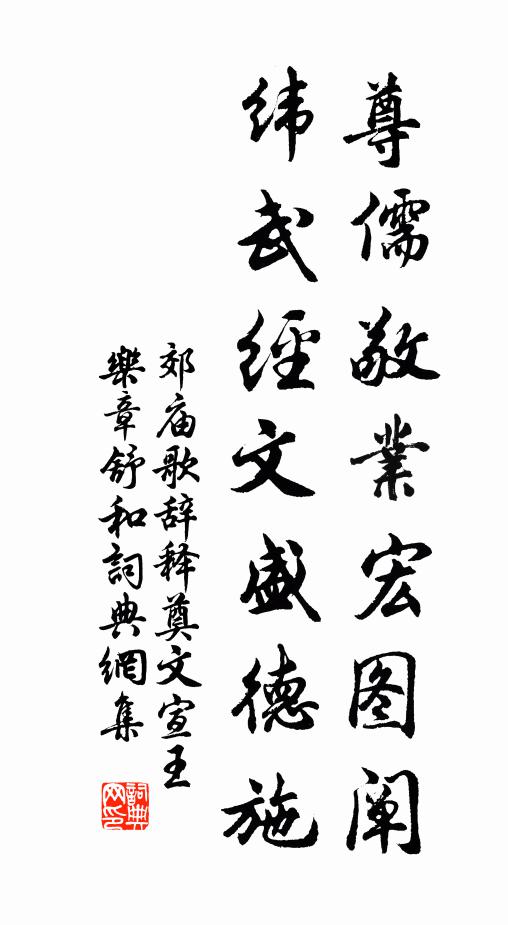 尊儒敬業宏图阐
緯武經文盛德施
郊庙歌辞释奠文宣王
樂章舒和詞典網集
詞典网印